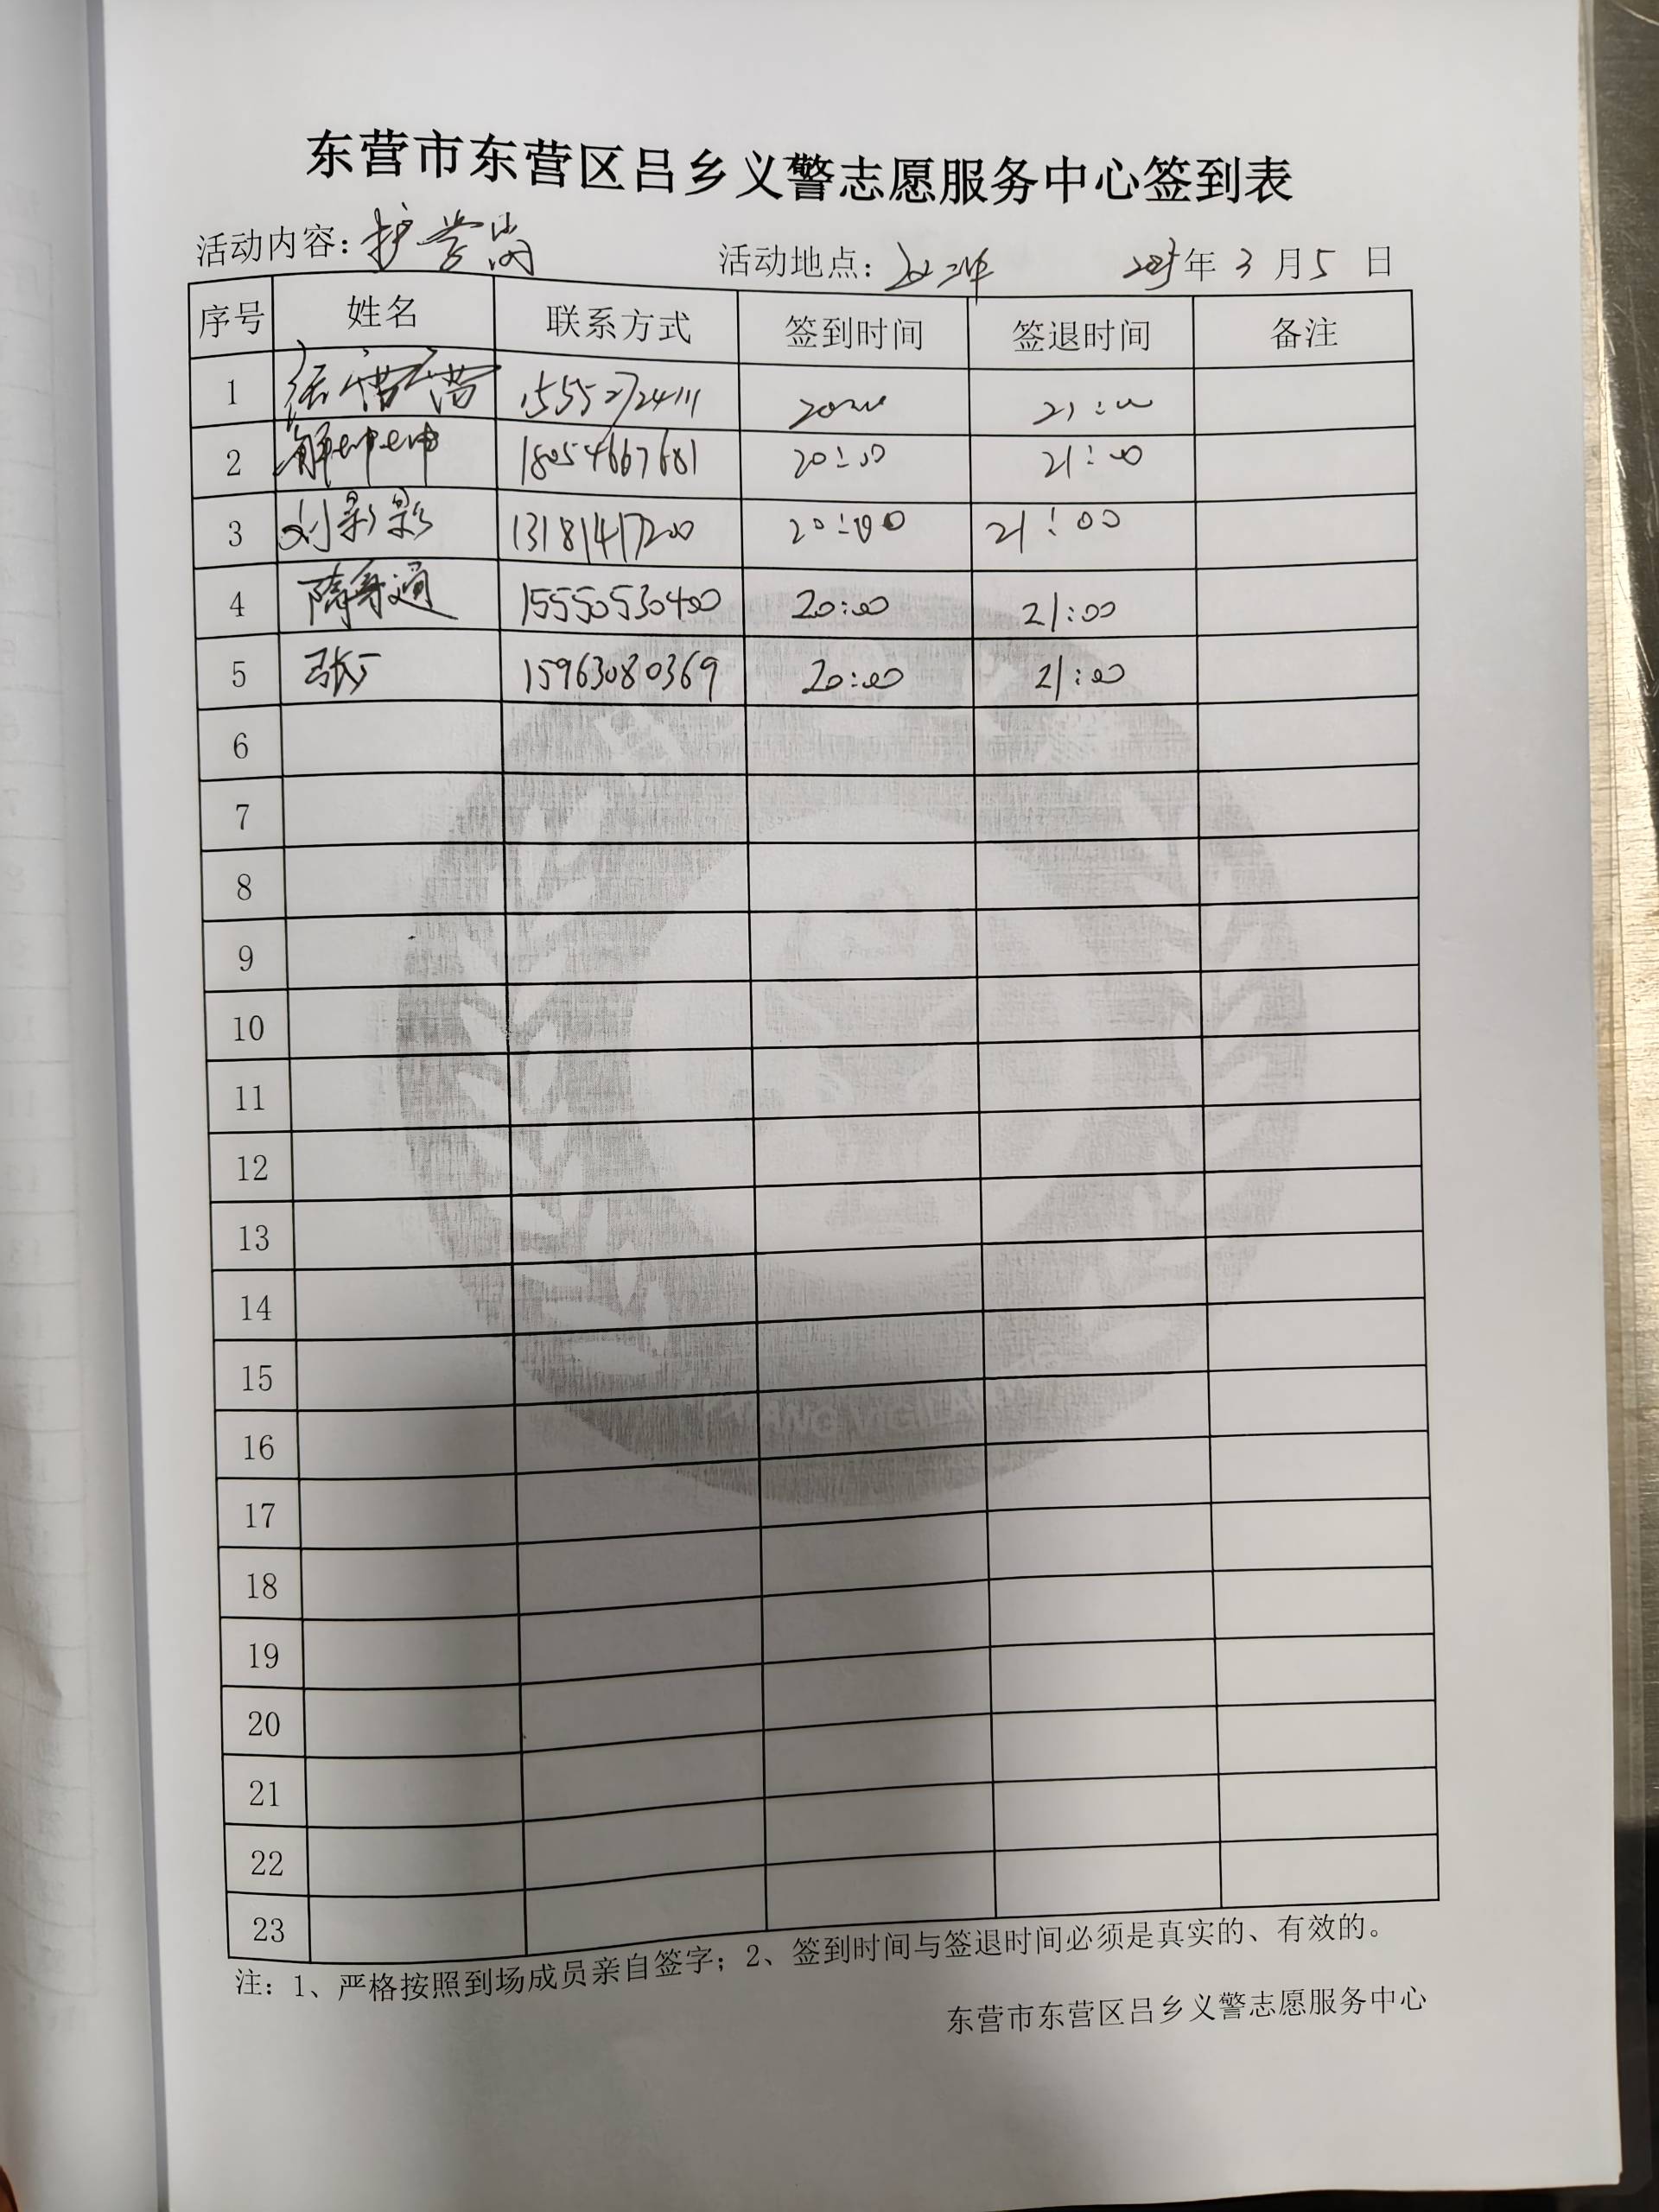 东营市东营区吕乡义警志愿服务中心签到表
活动内容：护学岗 活动地点： 2025年3月5日
序号 姓名 联系方式 签到时间 签退时间 备注
1 1555 20:00 21:00
2 解坤坤 18054667681 20:00 21:00
3 刘影影 13181417200 20:00 21:00
4 隋寿通 15550530400 20:00 21:00
5 张 15963080369 20:00 21:00
6
7
8
9
10
11
12
13
14
15
16
17
18
19
20
21
22
23
注：1、严格按照到场成员亲自签字；2、签到时间与签退时间必须是真实的、有效的。
东营市东营区吕乡义警志愿服务中心